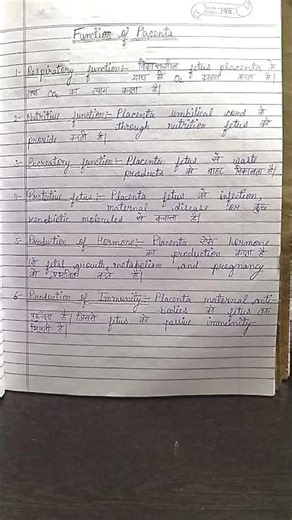 Function of Placenta
1- Respiratory function:- विकासशील fetus placenta के
द्वारा से O₂ ग्रहण करता है।
तथा Co₂ का त्याग करता है।
2- Nutritive function:- Placenta umbilical cord के
through nutrition fetus को
provide करती है।
3- Excreatory function:- Placenta fetus से waste
products को बाहर निकालता है।
4- Protetive fetus:- Placenta fetus को infection,
maternal disease एवं कुछ
xenobiotic molecules से बचाता है।
5- Production of Hormone:- Placenta ऐसे hormone
का production करता है
जो fetal growth, metabolism and pregnancy
को प्रभावित करते हैं।
6- Production of Immunity:- Placenta maternal anti
bodies को fetus तक
पहुंचाता है। जिससे fetus को passive immunity
मिलती है।